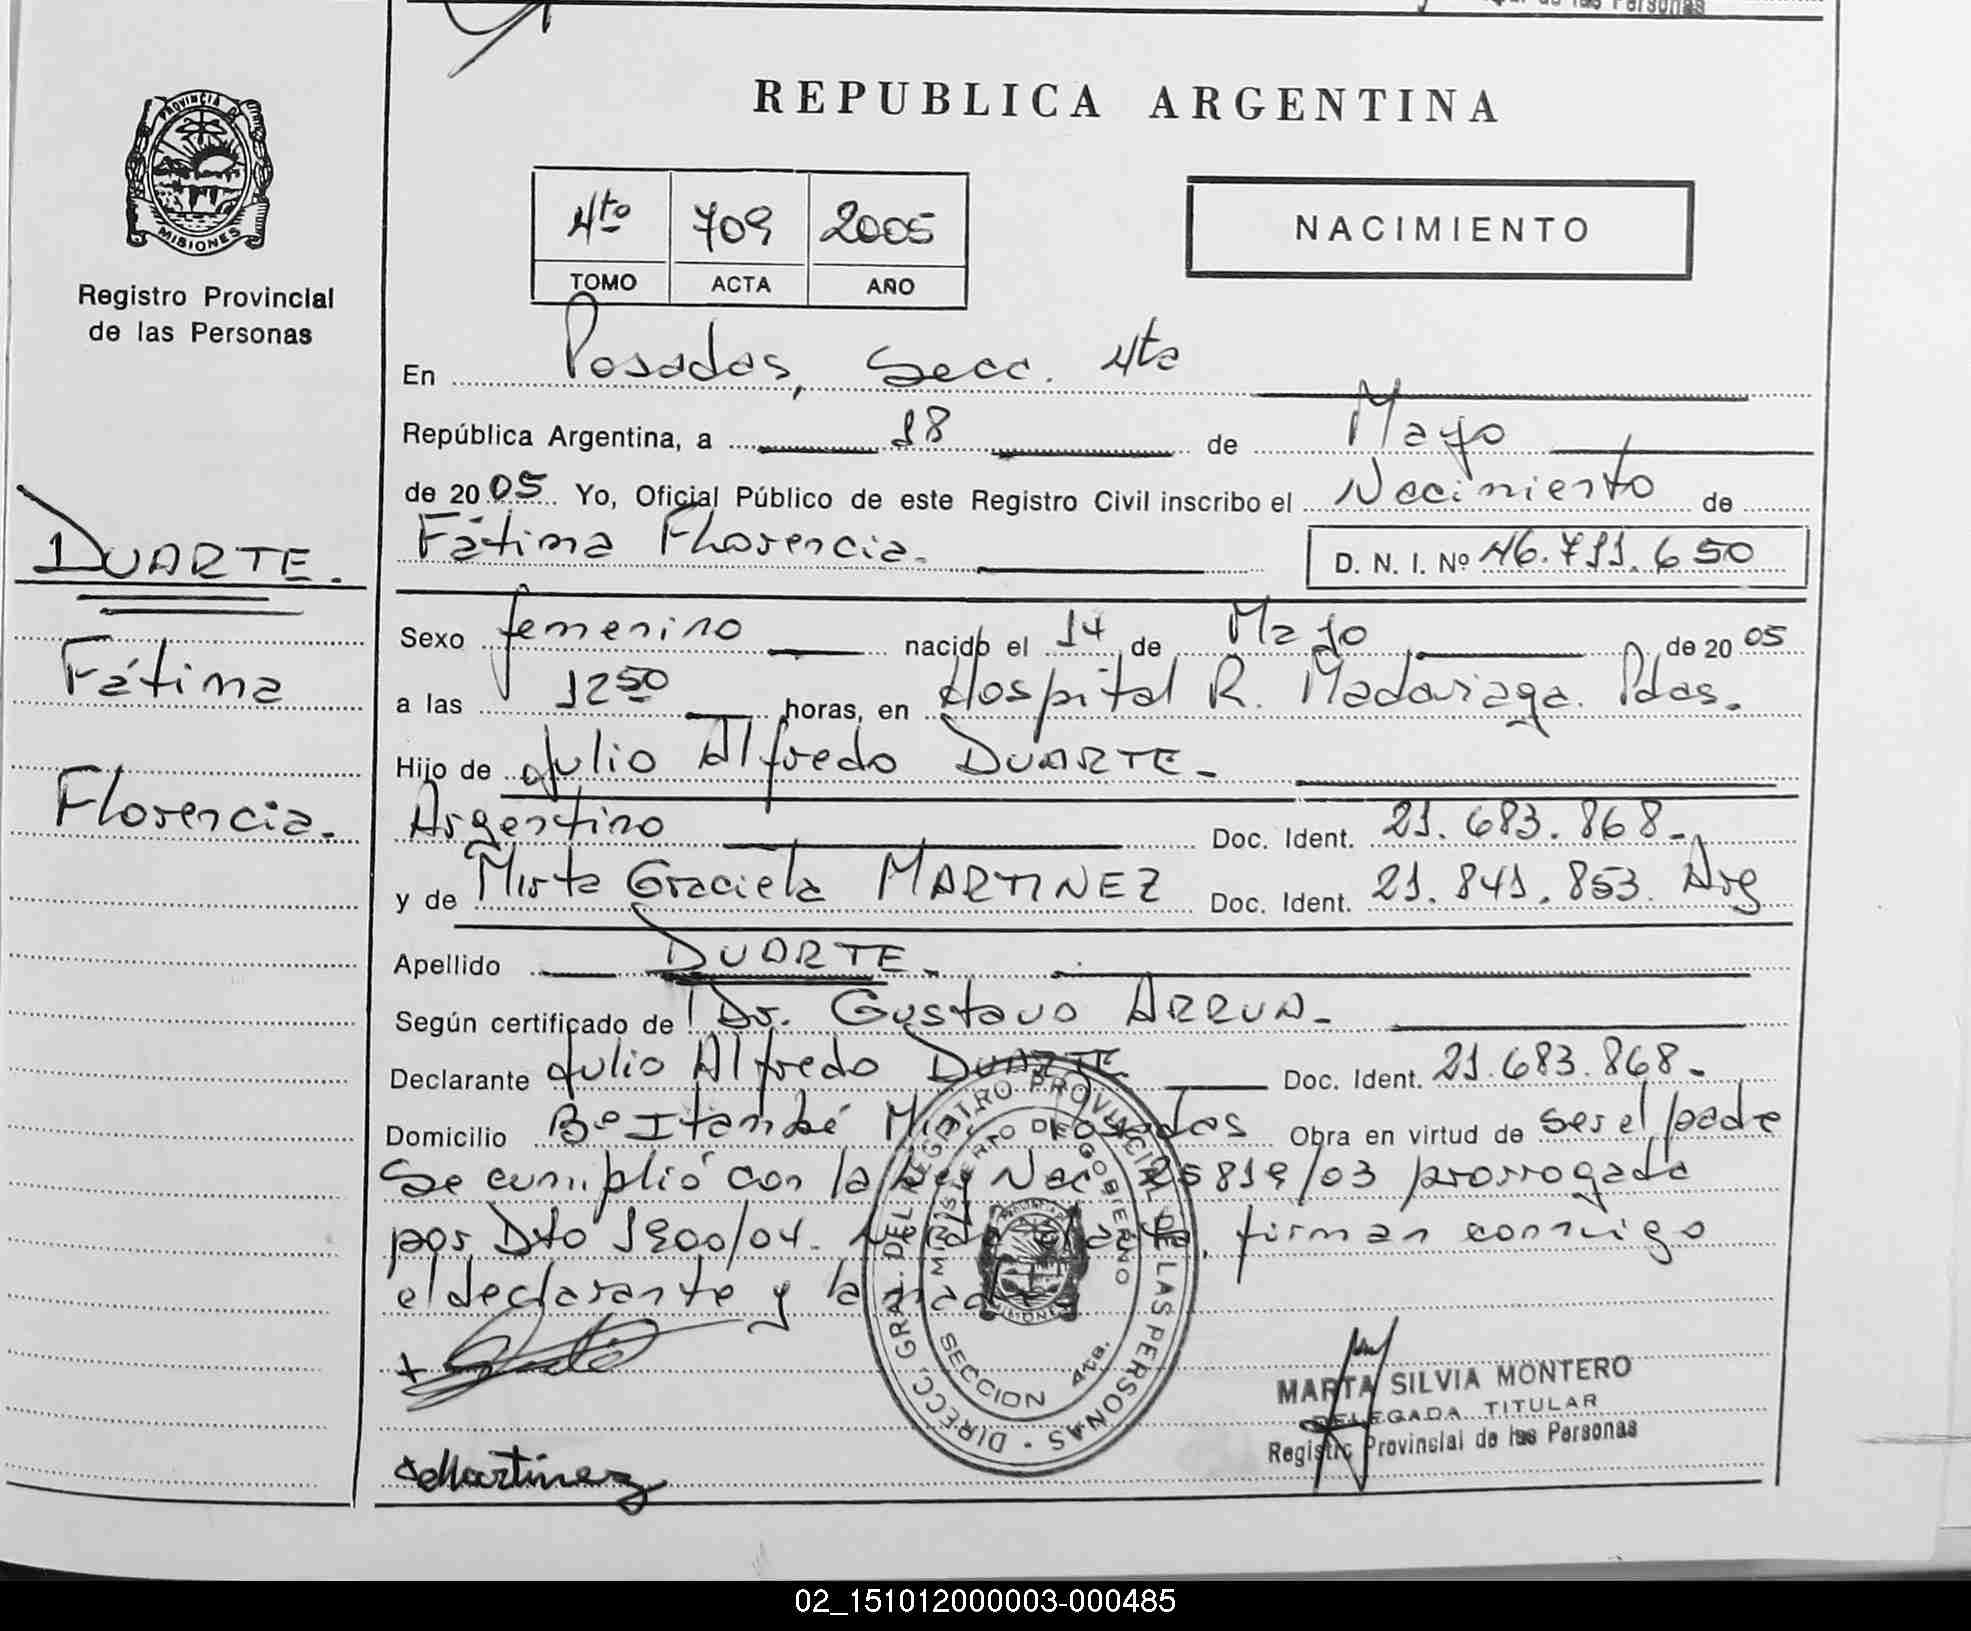 REPUBLICA ARGENTINA
PROVINCIA DE
MISIONES
Registro Provincial
de las Personas
4to 709 2005
TOMO ACTA AÑO
NACIMIENTO
En Posadas, Secc. 4ta
República Argentina, a 18 de Mayo
de 2005 Yo, Oficial Público de este Registro Civil inscribo el Nacimiento de
Fátima Florencia.
D. N. I. Nº 46.711.650
DUARTE.
Fátima
Florencia.
Sexo femenino nacido el 14 de Mayo de 2005
a las 12 50 horas, en Hospital R. Madariaga. Pdas.
Hijo de Julio Alfredo DUARTE-
Argentino Doc. Ident. 21.683.868-
y de Mirta Graciela MARTINEZ Doc. Ident. 21.841.853. Arg
Apellido DUARTE-
Según certificado de Dr. Gustavo ARRUA-
Declarante Julio Alfredo DUARTE Doc. Ident. 21.683.868-
Domicilio Bº Itambé Mini Posadas Obra en virtud de ser el padre
Se cumplió con la Ley Nac 25819/03 prorrogada
por Dto 1900/04. Leída el acta, firman conmigo
el declarante y la madre
DIRECC. GRAL. DEL REGISTRO PROVINCIAL DE LAS PERSONAS
MINISTERIO DE GOBIERNO
SECCION 4ta.
MARTA SILVIA MONTERO
DELEGADA TITULAR
Registro Provincial de las Personas
Martinez
02_151012000003-000485